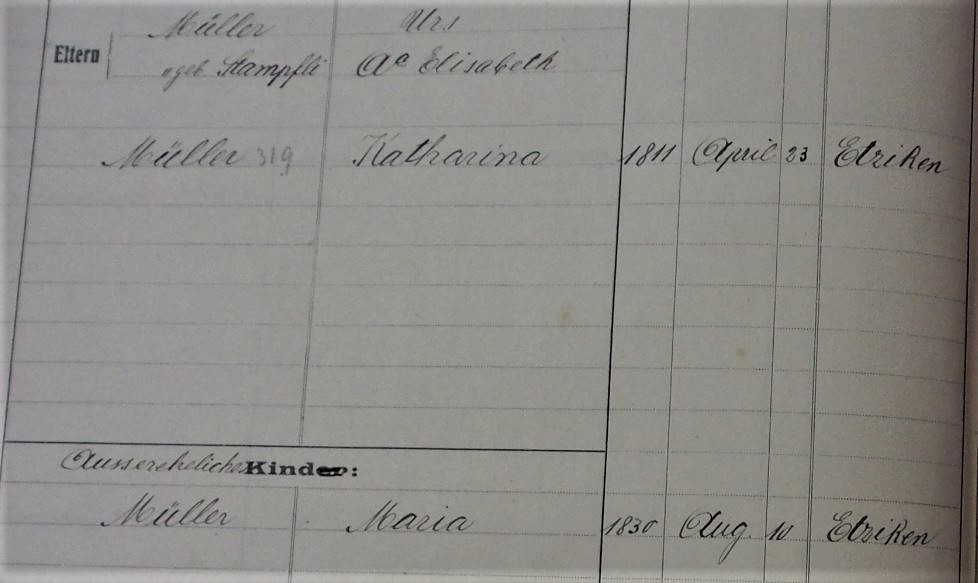 Müller Urs
Eltern
" geb. Stampfli Aᵃ Elisabeth
Müller 319 Katharina 1811 April 23 Etziken
Aussereheliches Kinder:
Müller Maria 1830 Aug. 10 Etziken